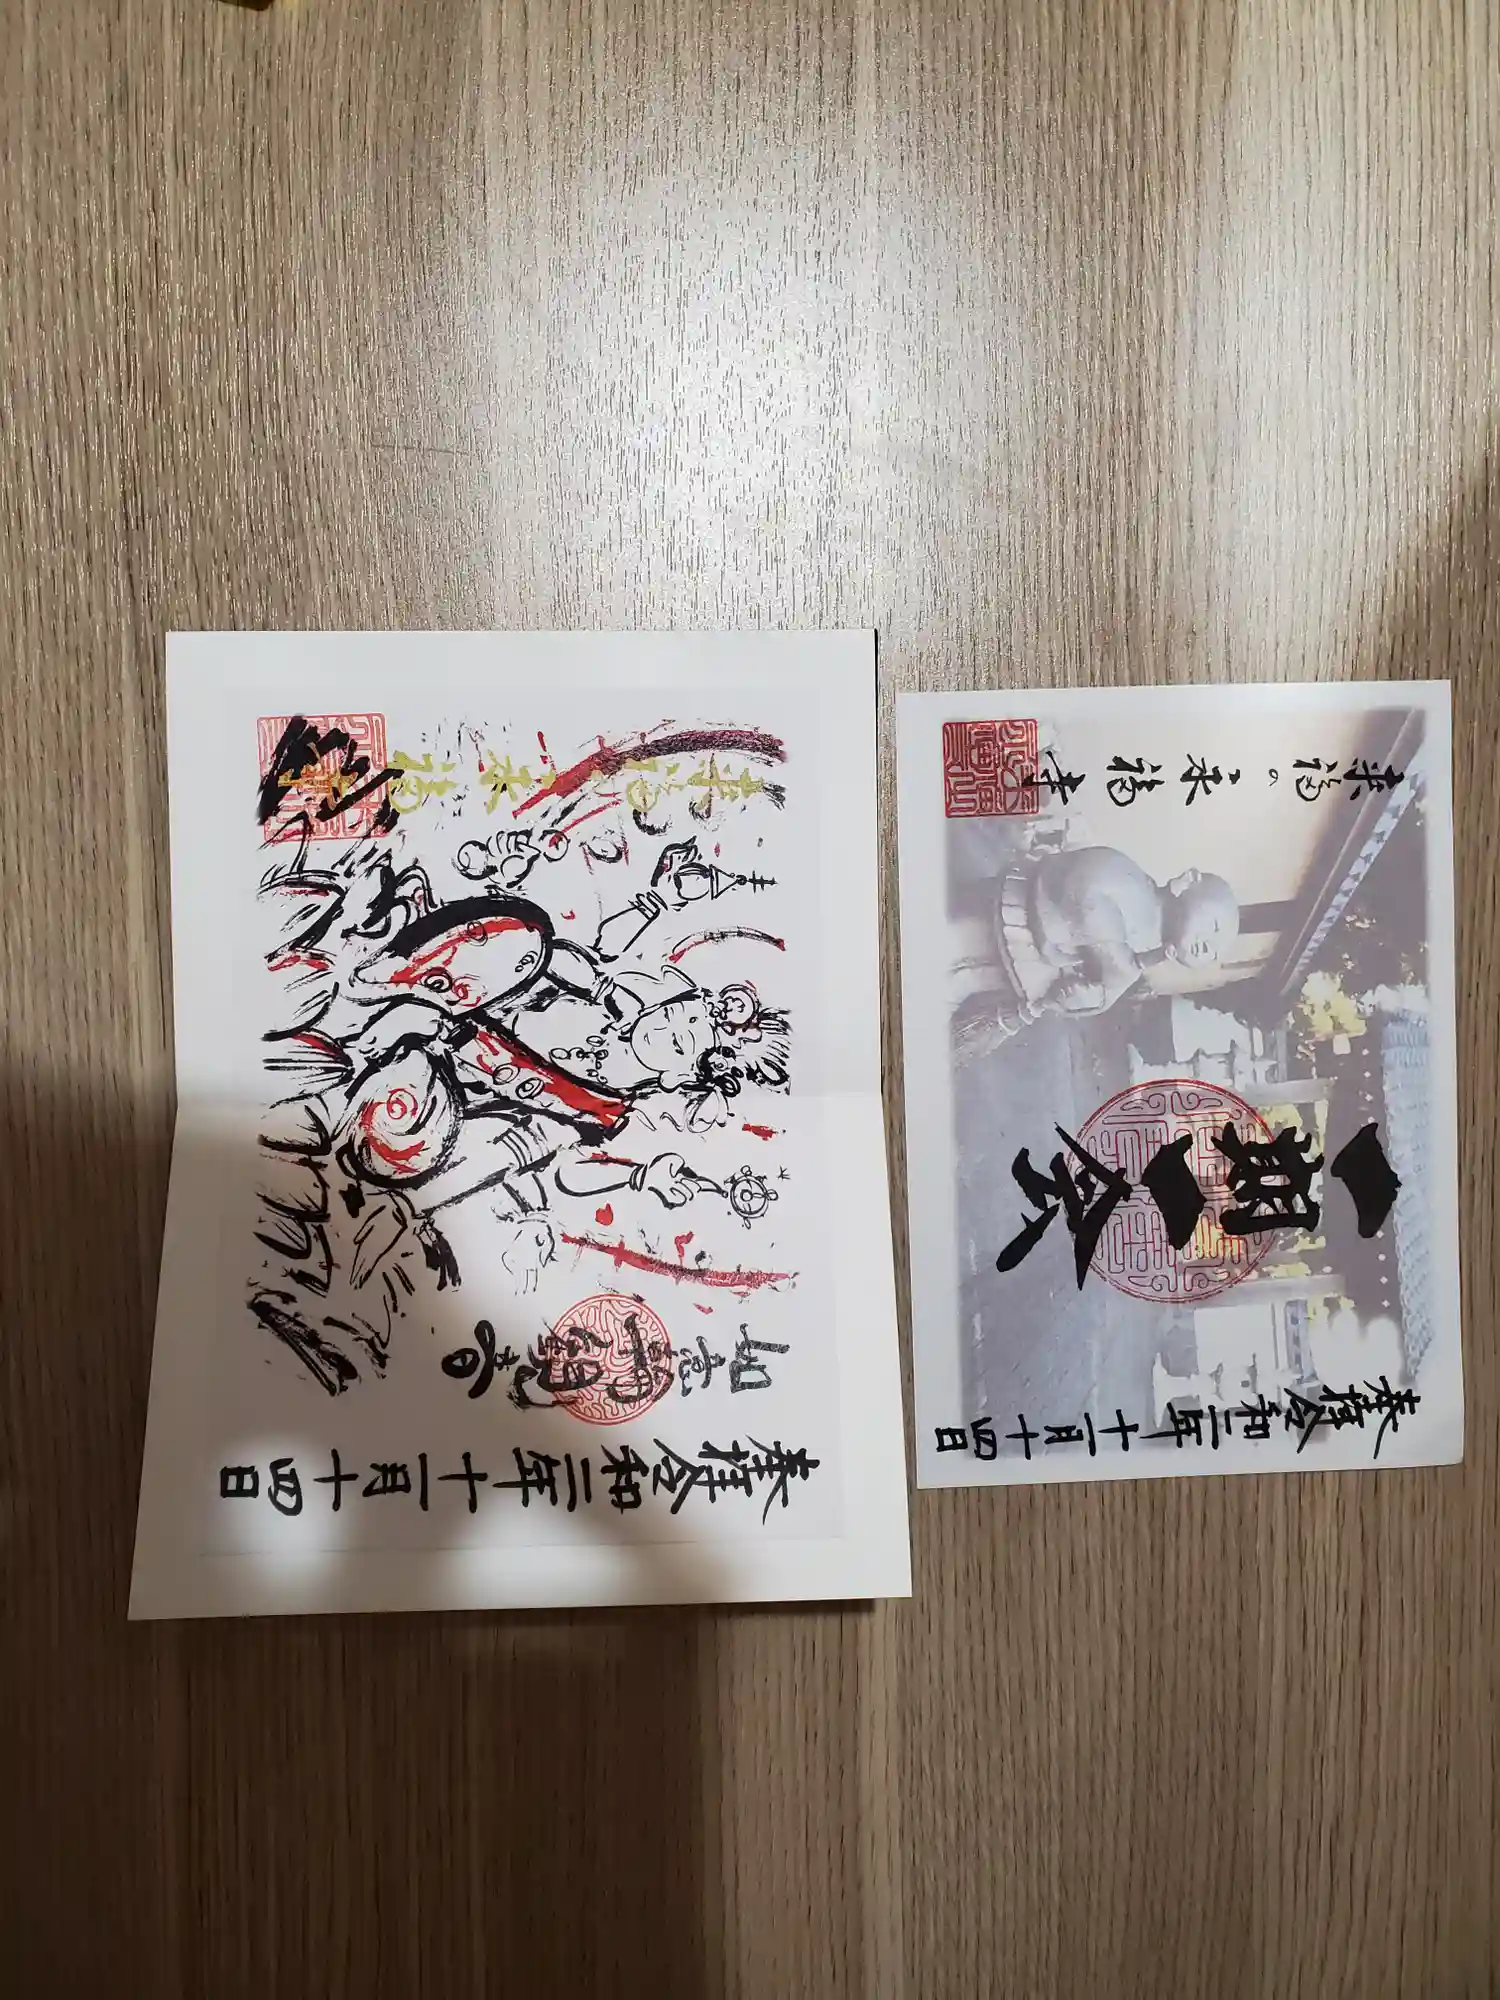 奉拝令和二年十一月十四日
如意輪観音
永福寺
奉拝令和二年十一月十四日
一期一会
永福寺